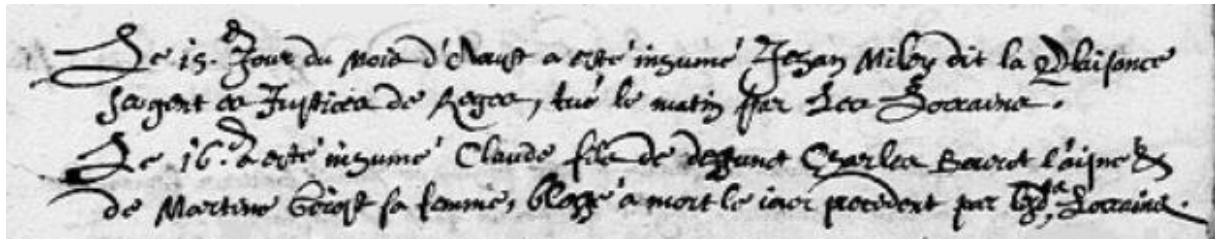 Le 15. Jour du mois d'Aoust a esté inhumé Jehan Miley dit la Plaisance
sergent es Justices de Reges, tué le matin par les Lorrains.
Le 16.e a esté inhumé Claude fils de deffunct Charles Bouvot l'aisné &
de Martine sa femme, blessé a mort le jour precedent par lesd.ts Lorrains.